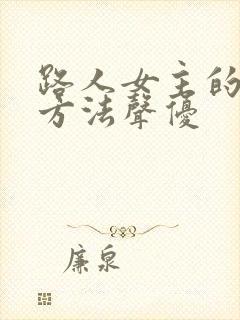 路人女主的
方法聲優
廉泉